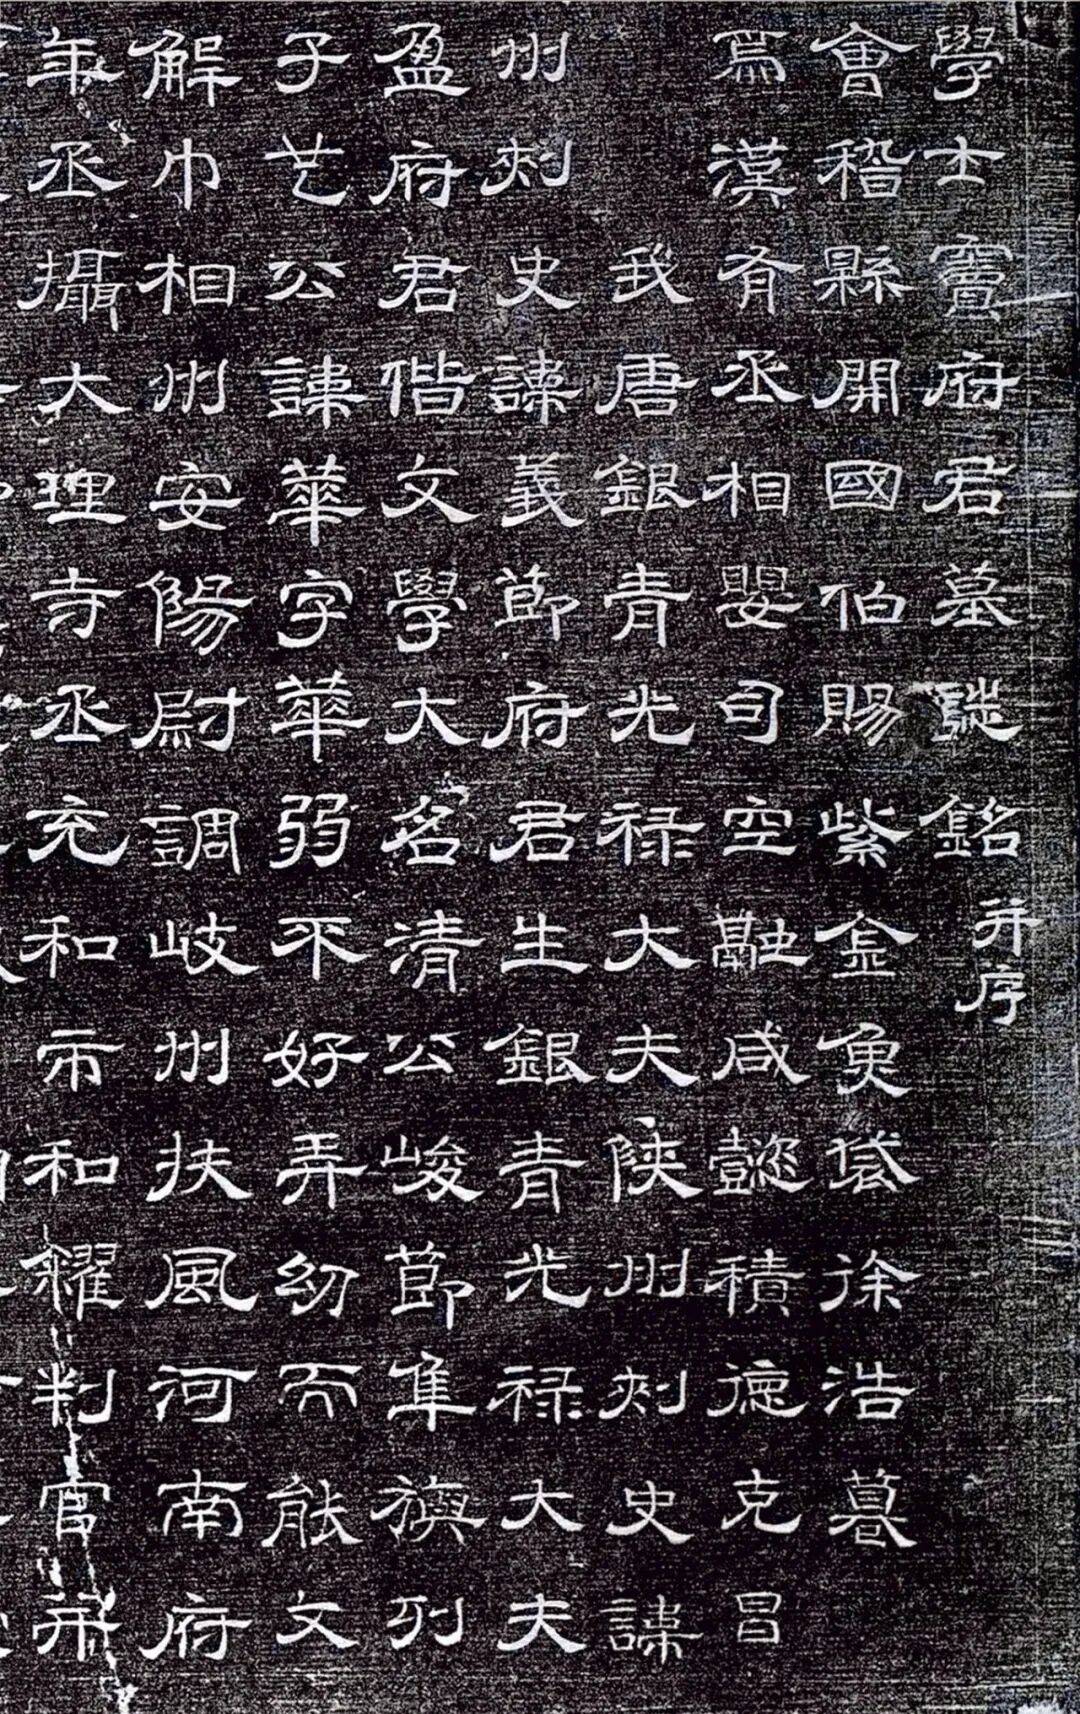 學士竇府君墓誌銘并序
會稽縣開國伯賜紫金魚袋徐浩
焉漢有丞相嬰司空融咸懿積德克昌
我唐銀青光祿大夫陝州刺史諱
州刺史諱義節府君生銀青光祿大夫
盈府君偕文學大名清公峻節隼旟列
子也公諱華字華弱不好弄幼而能文
解巾相州安陽尉調岐州扶風河南府
年丞攝大理寺丞充和市和糴判官